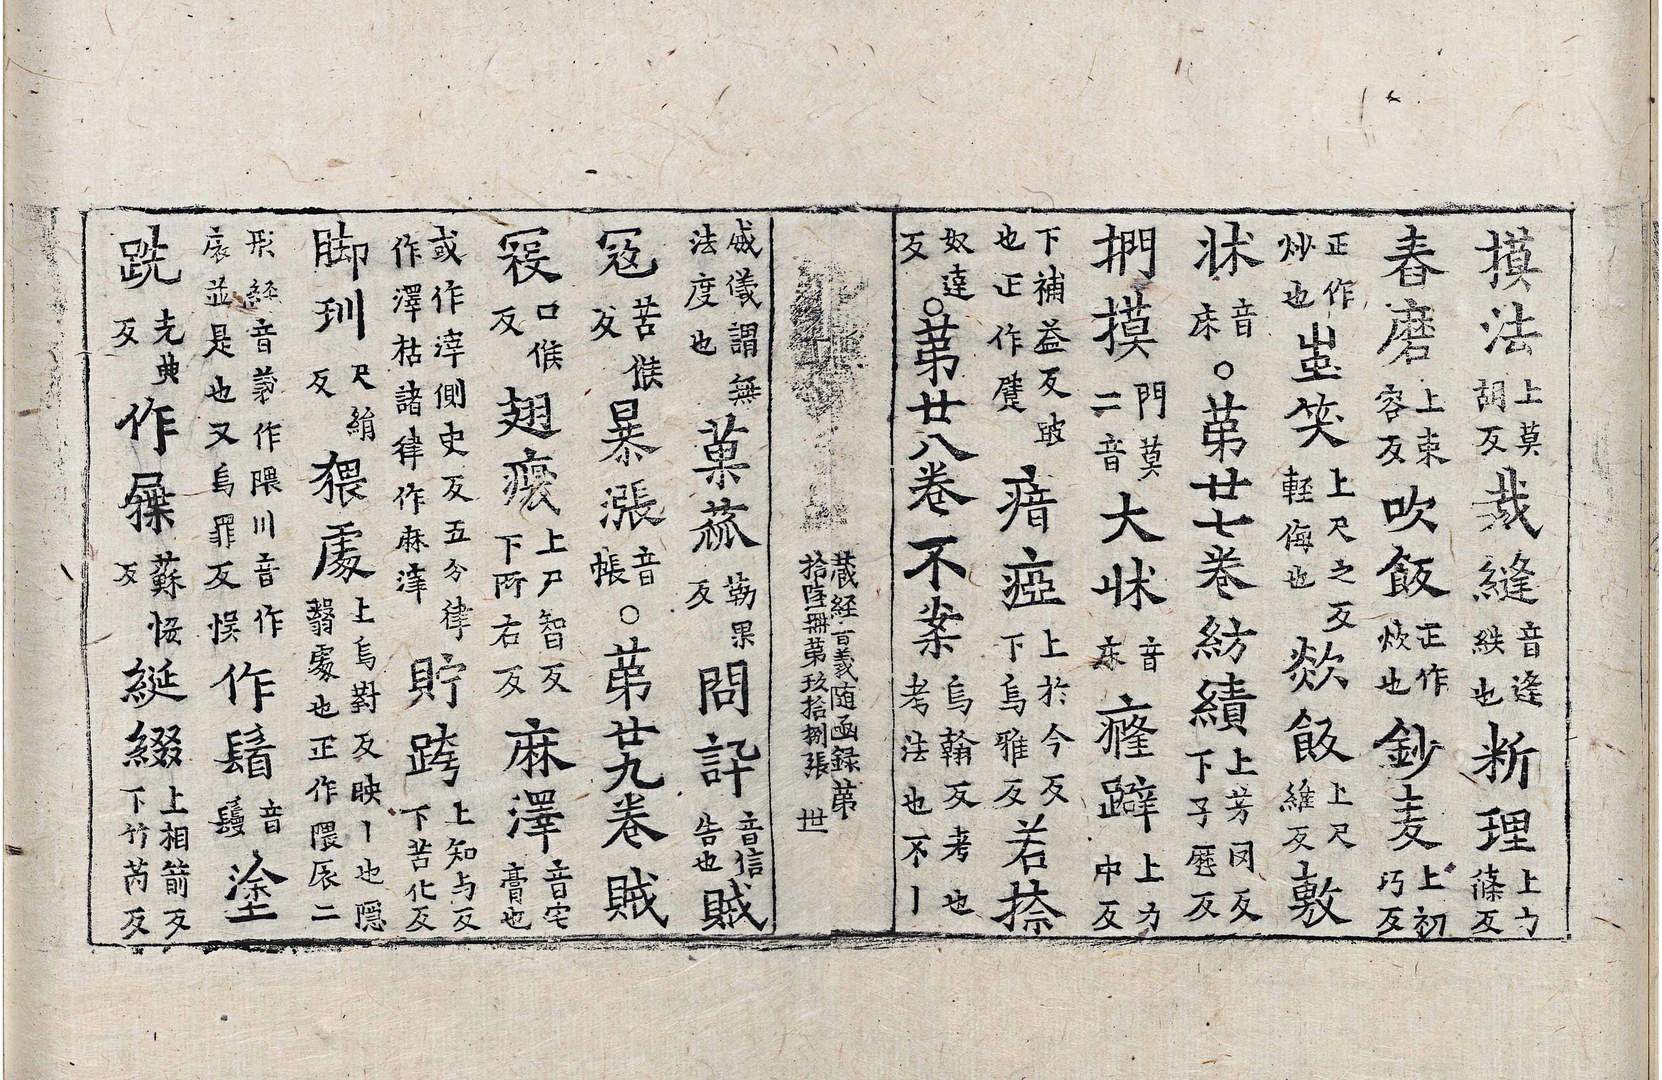 摸法上莫胡反裁縫音逢紩也断理上力絛反
舂磨上束容反吹飯正作炊也鈔麦上初巧反
正作炒也蚩笑上尺之反輕侮也歘飯上尺維反敷
牀音床○苐廿七卷紡績上芳罔反下子歷反
捫摸門莫二音大牀音床癃躃上力中反
下補益反跛也正作躄瘖瘂上於今反下烏雅反若捺
奴達反○苐廿八卷不案烏翰反考也考法也不丨
藏経音義随函録苐拾陸冊苐玖拾捌張 世
威儀謂無法度也菓蓏勒果反問訐音信告也賊
寇苦候反暴漲音帳○苐廿九卷賊
寇口候反翅瘢上尸智反下所右反麻滓音宅膏也
或作滓側史反五分律作澤枯諸律作麻滓貯跨上知与反下苦化反
脚玔尺絹反猥處上烏對反映丨也隱翳處也正作隈扆二
形経音義作隈川音作扆並是也又烏罪反悮作鬚音鬘塗
跣先典反作屧蘇恊反綖綴上相箭反下竹芮反